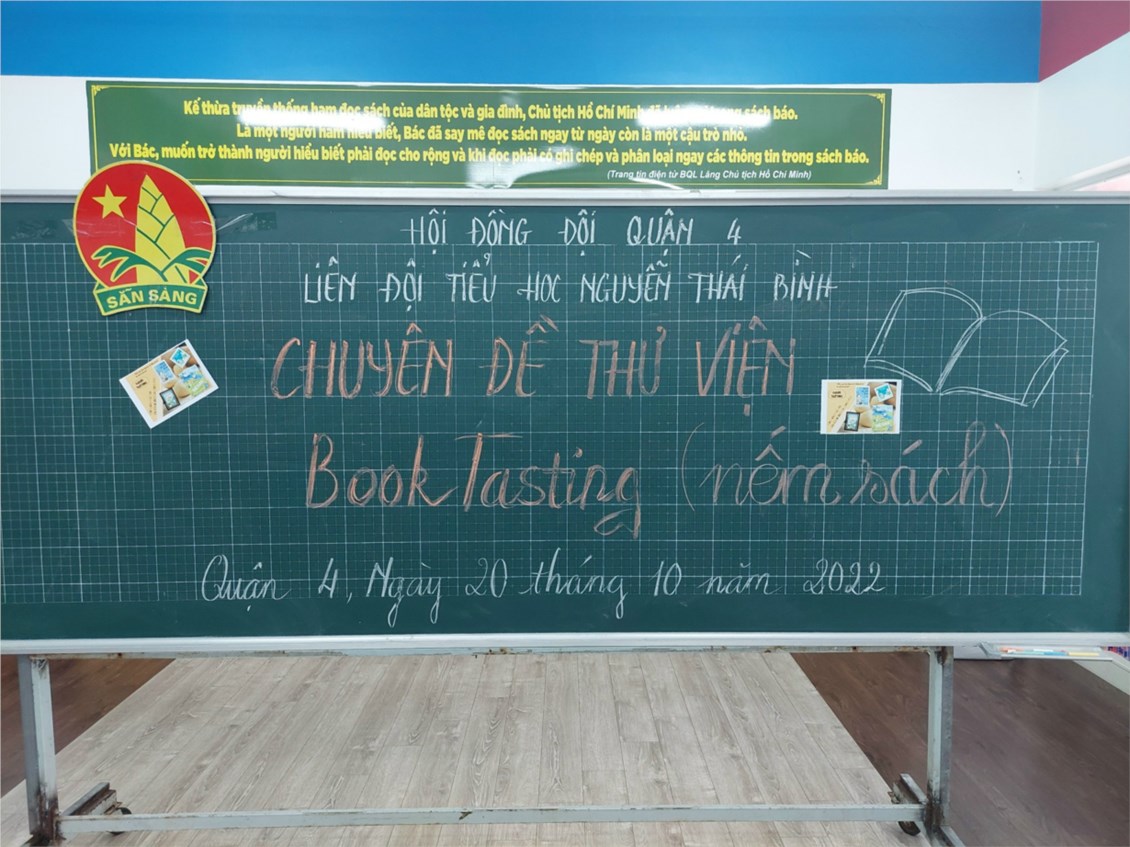 Kế thừa truyền thống ham đọc sách của dân tộc và gia đình, Chủ tịch Hồ Chí Minh sách báo.
Là một người ham hiểu biết, Bác đã say mê đọc sách ngay từ ngày còn là một cậu trò nhỏ.
Với Bác, muốn trở thành người hiểu biết phải đọc cho rộng và khi đọc phải có ghi chép và phân loại ngay các thông tin trong sách báo.
(Trang tin điện tử BQL Lăng Chủ tịch Hồ Chí Minh)
SẴN SÀNG
HỘI ĐỒNG ĐỘI QUẬN 4
LIÊN ĐỘI TIỂU HỌC NGUYỄN THÁI BÌNH
CHUYÊN ĐỀ THƯ VIỆN
Book Tasting (nếm sách)
Quận 4, Ngày 20 tháng 10 năm 2022